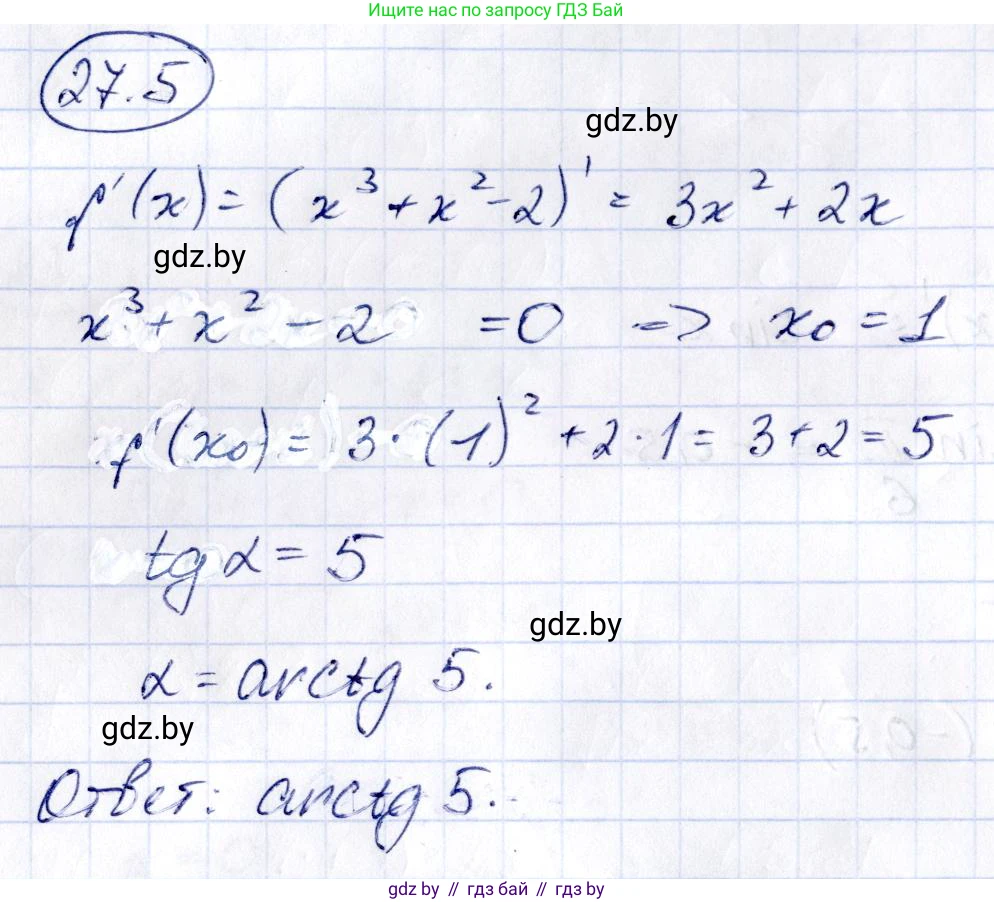 Ищите нас по запросу ГДЗ Бай
27.5
gdz.by
f'(x) = (x³ + x² - 2)' = 3x² + 2x
gdz.by
x³ + x² - 2 = 0 => x₀ = 1
f'(x₀) = 3·(1)² + 2·1 = 3 + 2 = 5
tg α = 5
gdz.by
α = arctg 5.
gdz.by
Ответ: arctg 5.
gdz.by // гдз бай // гдз by